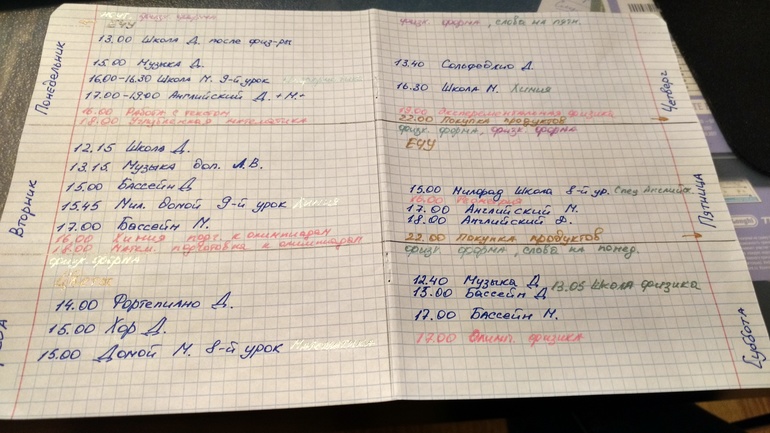 Понедельник
физк форма
ЕЧУ
13.00 Школа Д. после физ-ры
15.00 Музыка Д.
16.00-16.30 Школа М. 9-й урок
17.00-19.00 Английский Д. + М.+
16.00 Работа с текстом
18.00 Углубленная математика
Вторник
12.15 Школа Д.
13.15 Музыка доп. Л.В.
15.00 Бассейн Д
15.45 Мил. Домой 9-й урок Химия
17.00 Бассейн М.
16.00 Химия подг. к олимпиадам
18.00 Матем. подготовка к олимпиадам
физк. форма
14.00 Фортепиано Д.
15.00 Хор Д.
15.00 Домой М. 8-й урок Математика
Четверг
физк. форма, слова на пятн.
13.40 Сольфеджио Д.
16.30 Школа М. Химия
18.00 Экспериментальная физика
22.00 Покупка продуктов
Пятница
физк. форма, физк. форма
ЕЧУ
15.00 Школа 8-й ур. Спец Английск.
16.00 Геометрия
17.00 Английский М.
18.00 Английский Д.
22.00 Покупка продуктов
Суббота
физк. форма, слова на понед.
12.40 Музыка Д. 13.05 Школа физика
15.00 Бассейн Д
17.00 Бассейн М.
17.00 Олимп. физика